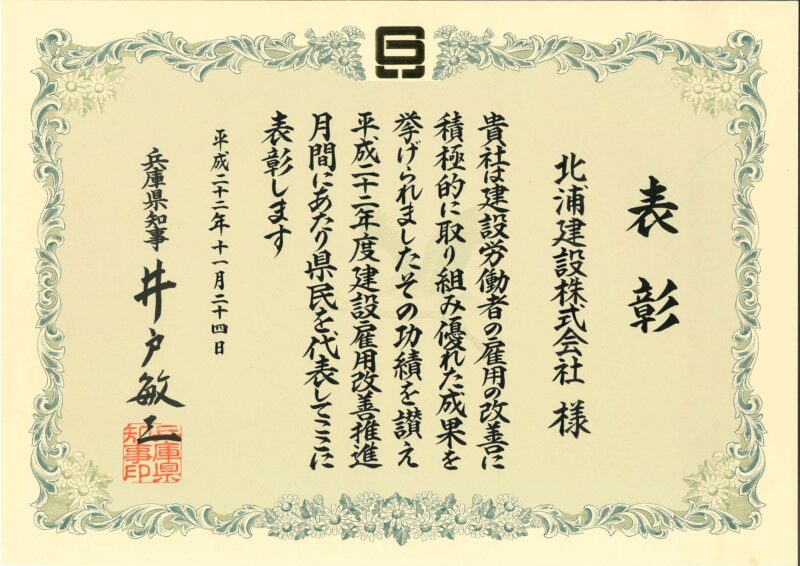 表彰
北浦建設株式会社 様
貴社は建設労働者の雇用の改善に
積極的に取り組み優れた成果を
挙げられましたその功績を讃え
平成二十二年度建設雇用改善推進
月間にあたり県民を代表してここに
表彰します
平成二十二年十一月二十四日
兵庫県知事 井戸敏三
兵庫県
知事印